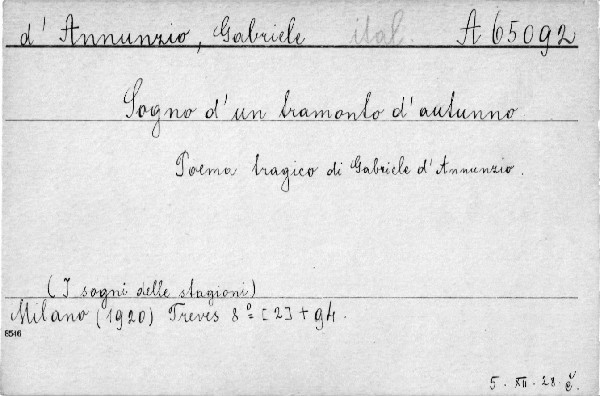 d' Annunzio, Gabriele ital. A 65092
Sogno d'un tramonto d'autunno
Poema tragico di Gabriele d'Annunzio.
(I sogni delle stagioni)
Milano (1920) Treves 8° [2] + 94.
8516
5. XII. 28.